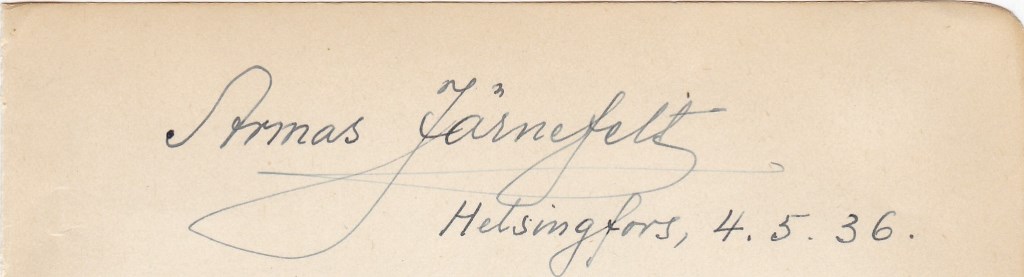 Armas Järnefelt
Helsingfors, 4.5.36.